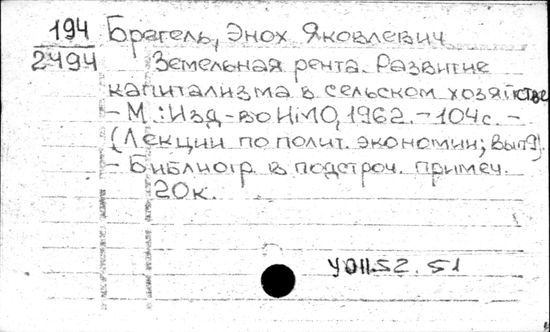 194 Брегель, Энох Яковлевич
2494 Земельная рента. Развитие
капитализма в сельском хозяйстве
- М.: Изд-во ИМО, 1962. - 104 с. -
(Лекции по полит. экономии; Вып 9).
- Библиогр. в подстроч. примеч.
20к.
У011.52.51